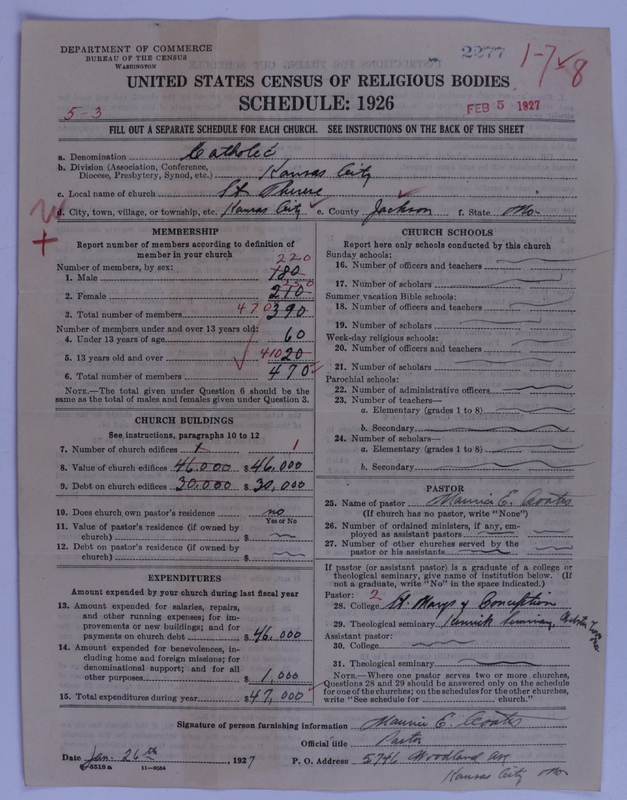 DEPARTMENT OF COMMERCE
BUREAU OF THE CENSUS
WASHINGTON
2377
1-7 8
UNITED STATES CENSUS OF RELIGIOUS BODIES
SCHEDULE: 1926
5-3
FEB 5 1927
FILL OUT A SEPARATE SCHEDULE FOR EACH CHURCH. SEE INSTRUCTIONS ON THE BACK OF THIS SHEET
a. Denomination Catholic
b. Division (Association, Conference, Diocese, Presbytery, Synod, etc.) Kansas City
c. Local name of church St Therese
d. City, town, village, or township, etc. Kansas City e. County Jackson f. State Mo.
MEMBERSHIP
Report number of members according to definition of
member in your church
Number of members, by sex: 220
1. Male 180
2. Female 210
3. Total number of members 470 390
Number of members under and over 13 years old:
4. Under 13 years of age 60
5. 13 years old and over 410 20
6. Total number of members 470
NOTE.—The total given under Question 6 should be the
same as the total of males and females given under Question 3.
CHURCH BUILDINGS
See instructions, paragraphs 10 to 12
7. Number of church edifices 1 1
8. Value of church edifices 46,000 $ 46,000
9. Debt on church edifices 30,000 $ 30,000
10. Does church own pastor's residence? no
Yes or No
11. Value of pastor's residence (if owned by
church) $
12. Debt on pastor's residence (if owned by
church) $
EXPENDITURES
Amount expended by your church during last fiscal year
13. Amount expended for salaries, repairs,
and other running expenses; for im-
provements or new buildings; and for
payments on church debt $46,000
14. Amount expended for benevolences, in-
cluding home and foreign missions; for
denominational support; and for all
other purposes 1,000
15. Total expenditures during year $47,000
CHURCH SCHOOLS
Report here only schools conducted by this church
Sunday schools:
16. Number of officers and teachers
17. Number of scholars
Summer vacation Bible schools:
18. Number of officers and teachers
19. Number of scholars
Week-day religious schools:
20. Number of officers and teachers
21. Number of scholars
Parochial schools:
22. Number of administrative officers
23. Number of teachers—
a. Elementary (grades 1 to 8)
b. Secondary
24. Number of scholars—
a. Elementary (grades 1 to 8)
b. Secondary
PASTOR
25. Name of pastor Maurice E. Coates
(If church has no pastor, write "None")
26. Number of ordained ministers, if any, em-
ployed as assistant pastors
27. Number of other churches served by the
pastor or his assistants
If pastor (or assistant pastor) is a graduate of a college or
theological seminary, give name of institution below. (If
not a graduate, write "No" in the space indicated.)
Pastor: 2
28. College St. Marys & Conception
29. Theological seminary Kenrick Seminary,
Assistant pastor:
30. College
31. Theological seminary
NOTE.—Where one pastor serves two or more churches,
Questions 28 and 29 should be answered only on the schedule
for one of the churches; on the schedules for the other churches,
write "See schedule for church."
Signature of person furnishing information Maurice E. Coates
Official title Pastor
Date Jan. 26th, 1927 P. O. Address 5746 Woodland ave
Kansas City Mo
5518 a 11—9054